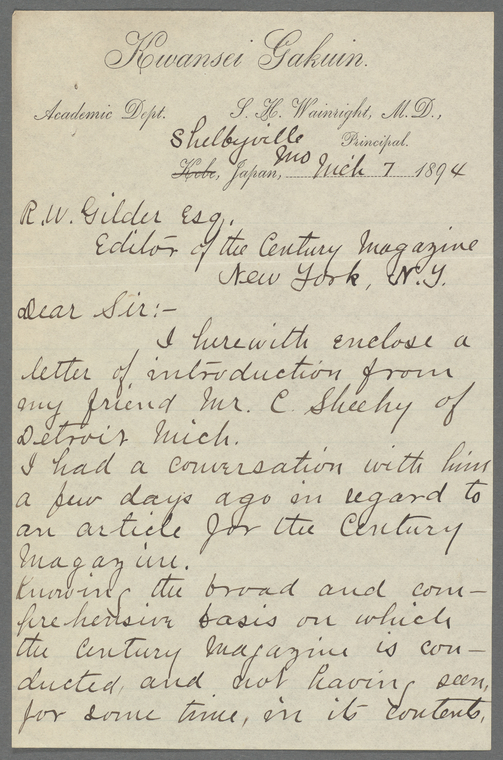 Kwansei Gakuin.
Academic Dept. S. H. Wainright, M.D.,
Shelbyville Principal.
Kobe, Japan, Mo Mch 7 1894
R. W. Gilder Esq.
Editor of the Century Magazine
New York, N.Y.
Dear Sir:-
I herewith enclose a
letter of introduction from
my friend Mr. C Sheehy of
Detroit Mich.
I had a conversation with him
a few days ago in regard to
an article for the Century
Magazine.
Knowing the broad and com-
prehensive basis on which
the Century Magazine is con-
ducted, and not having seen,
for some time, in its contents,